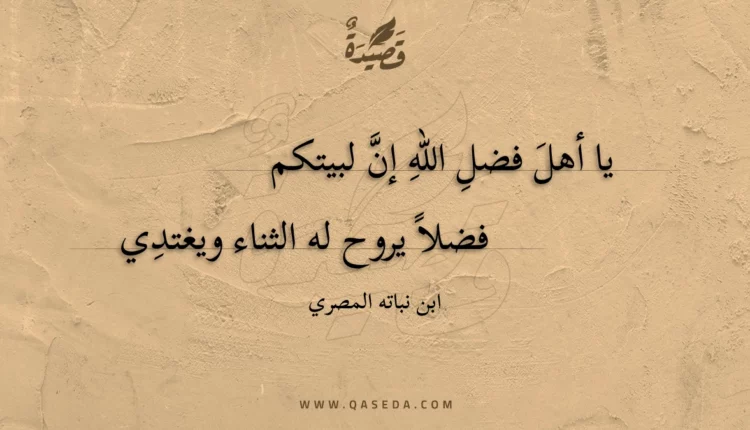 قَصِيْدَةٌ
يا أهلَ فضلِ اللهِ إنَّ لبيتكم
فضلاً يروح له الثناء ويغتدِي
ابن نباته المصري
WWW.QASEDA.COM